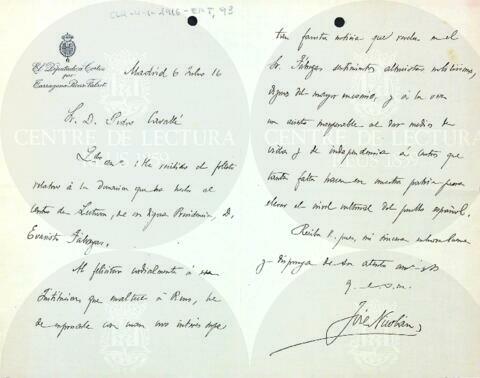 CLR-4-1-1916-ENT, 93
El Diputado á Cortes
por
Tarragona-Reus-Falset
Madrid 6 Julio 16
Sr. D. Pedro Cavallé
He recibido el folleto
relativo á la donacion que ha hecho al
Centro de Lectura, de su digna Presidencia, D.
Evaristo Fábregas.
Al felicitar cordialmente á esa
Institucion que enaltece á Reus, he
de
con
tan fausta noticia que revela en el
Sr. Fábregas sentimientos altruistas nobilísimos,
dignos del mayor encomio, y á la vez
un acierto inmejorable al dar medios de
vida y de independencia á centros que
tanta falta hacen en nuestra patria para
elevar el nivel cultural del pueblo español.
Reciba V. pues, mi sincera enhorabuena
y disponga de su atento am
q. e. s. m.
José Nicolau
CENTRE DE LECTURA
1859
CENTRE DE LECTURA
1859